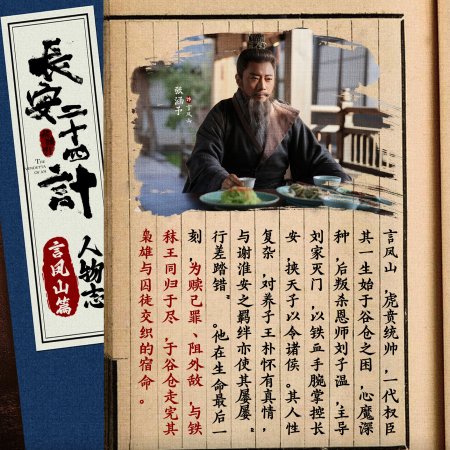 長安二十四計
THE
VENDETTA
OF AN
人物志
言凤山篇
张涵予
饰言凤山
言凤山，虎贲统帅，一代权臣
其一生始于谷仓之困，心魔深
种，后叛杀恩师刘子温，主导
刘家灭门，以铁血手腕掌控长
安，挟天子以令诸侯。其人性
复杂，对养子王朴怀有真情，
与谢淮安之羁绊亦使其屡屡
行差踏错。他在生命最后一
刻，为赎己罪、阻外敌，与铁
秣王同归于尽，于谷仓走完其
枭雄与囚徒交织的宿命。